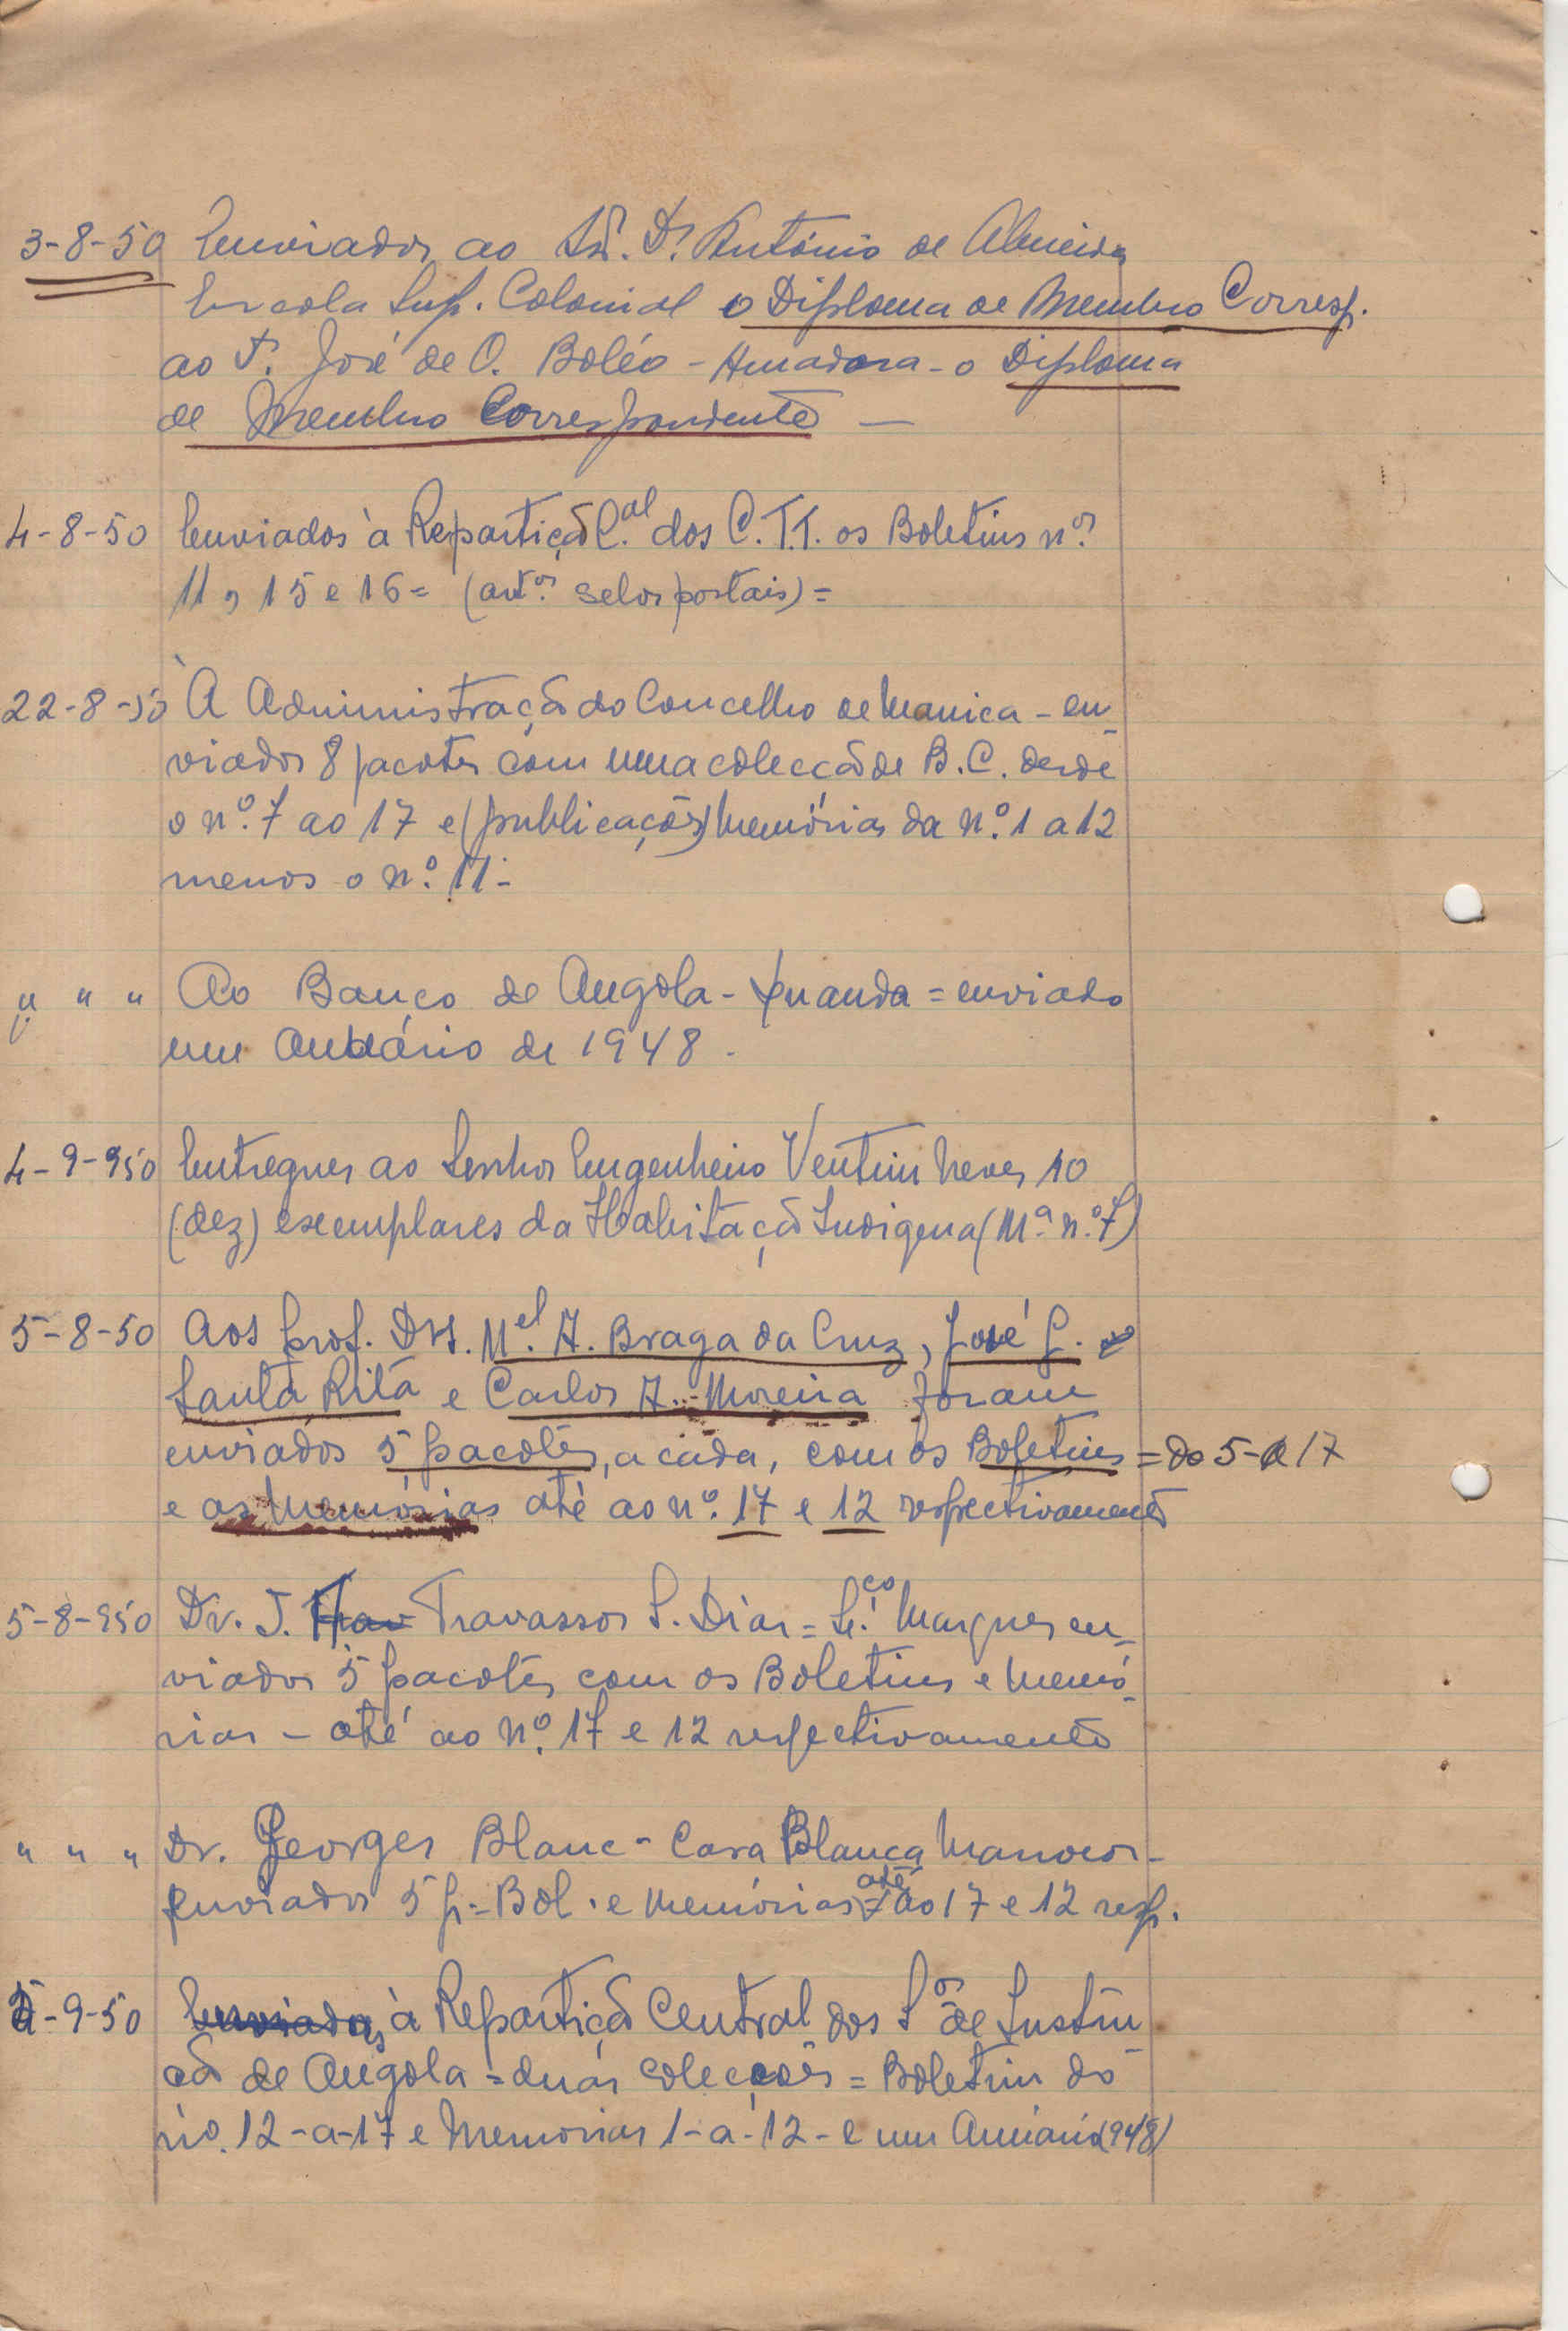 3-8-50 Enviados ao Sr. Dr. António de Almeida
Escola Sup. Colonial o Diploma de Membro Corresp.
ao Dr. José de O. Boléo - Amadora - o Diploma
de Membro Correspondente —
4-8-50 Enviados à Repartição C.al dos C.T.T. os Boletins n.os
11, 15 e 16 = (art.os selos postais) =
22-8-50 À Administração do Concelho de Manica - en-
viados 8 pacotes com uma colecção de B.C. desde
o n.º 7 ao 17 e (publicações) Memórias da n.º 1 a 12
menos o n.º 11 -
" " " Ao Banco de Angola - Luanda = enviado
um Anuário de 1948 -
4-9-950 Entregues ao Senhor Engenheiro Ventim Neves 10
(dez) exemplares da Habitação Indigena (M.a n.º 7)
5-8-50 Aos prof. Drs. M.el A. Braga da Cruz, José G. de
Santa Rita e Carlos A. Moreira foram
enviados 5 pacotes, a cada, com os Boletins = do 5-a 17
e as Memórias até ao n.º 17 e 12 respectivamente
5-8-950 Dr. J. Trav Travassos S. Dias = L.ço Marques en-
viados 5 pacotes com os Boletins e Memó-
rias - até ao n.º 17 e 12 respectivamente
" " " Dr. Georges Blanc - Casa Blanca Marrocos -
Enviados 5 p. = Bol. e Memórias até ao 17 e 12 resp.
5-9-50 Enviadas à Repartição Central dos S.os de Instru-
ção de Angola = duas colecções = Boletim do
n.º 12-a-17 e Memorias 1-a-12 - e um Anuário (948)